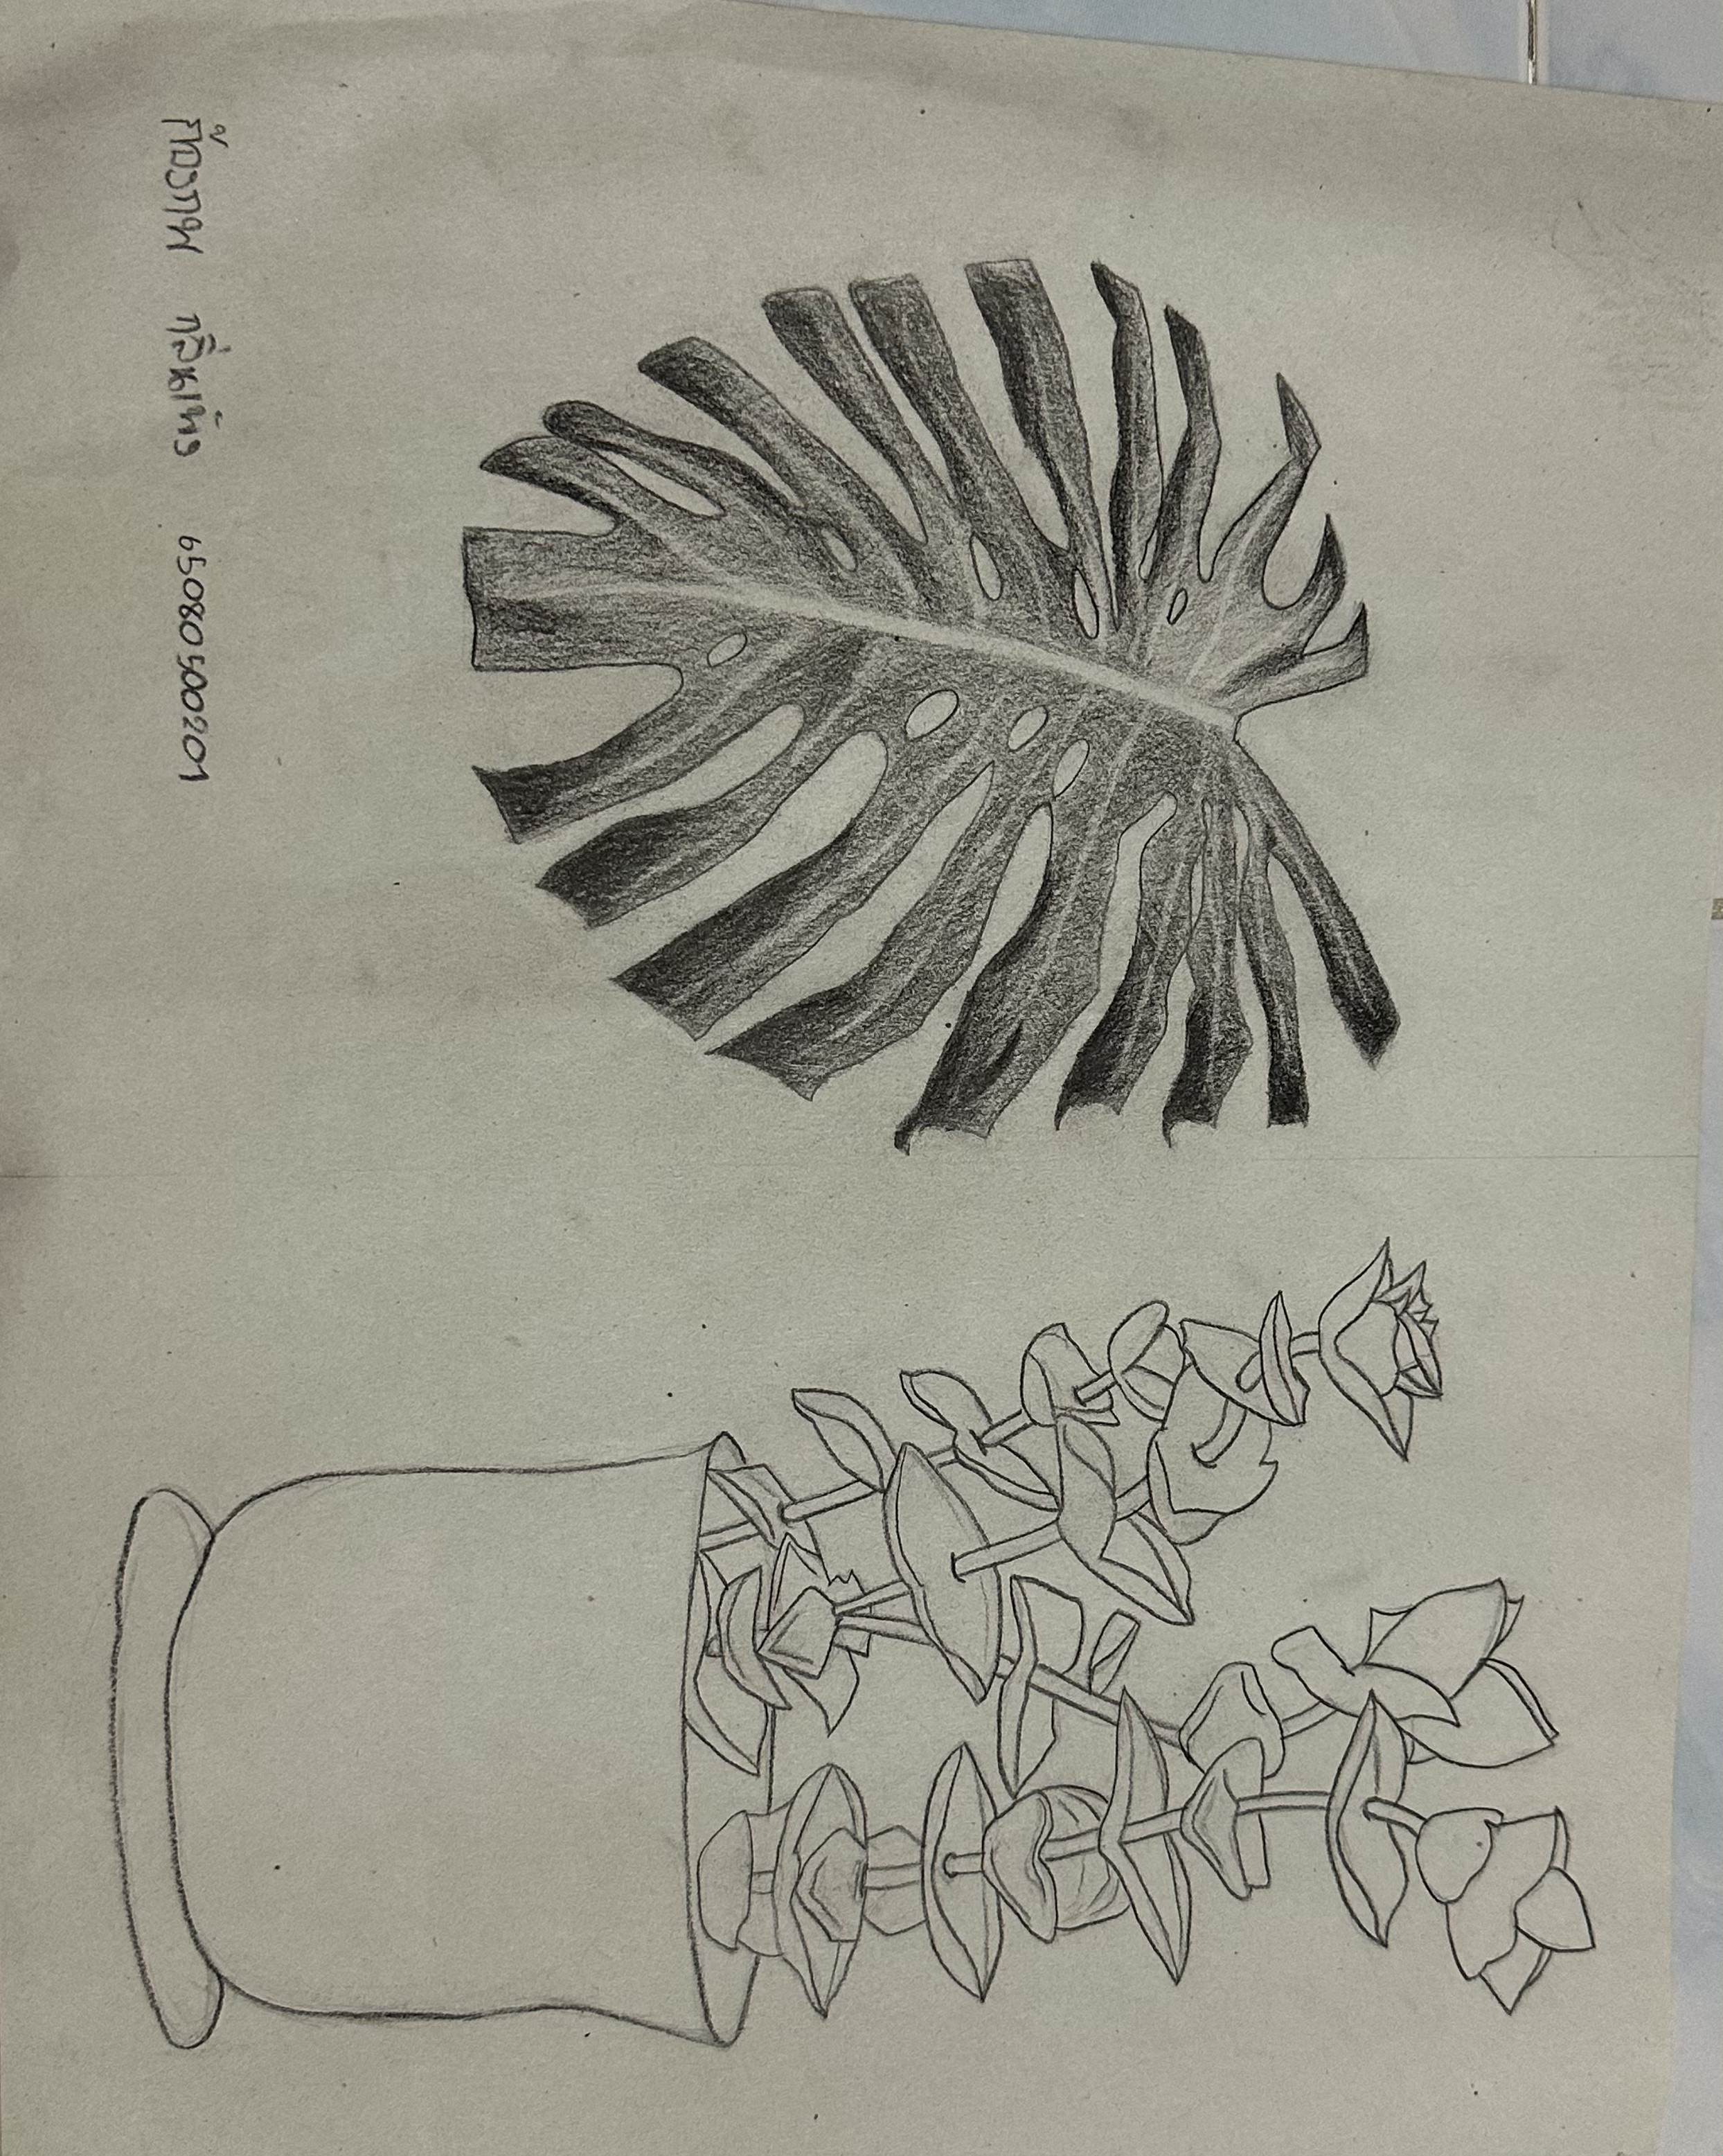 ก้องภพ กลิ่นเทียง 65080500201